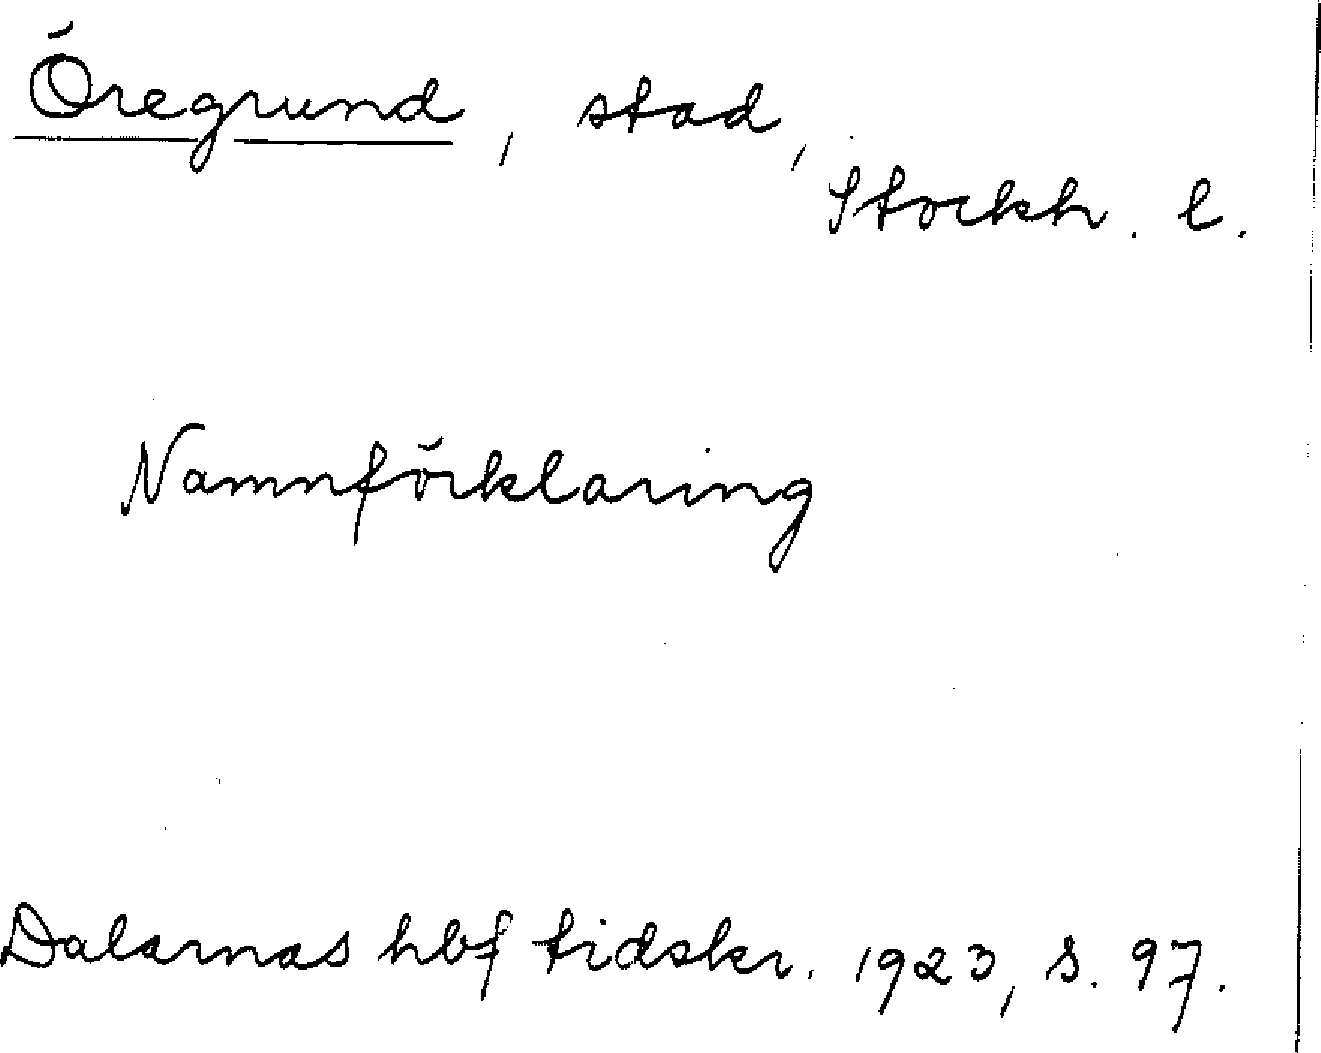 Öregrund, stad,
Stockh. l.
Namnförklaring
Dalarnas hbf tidskr. 1923, s. 97.